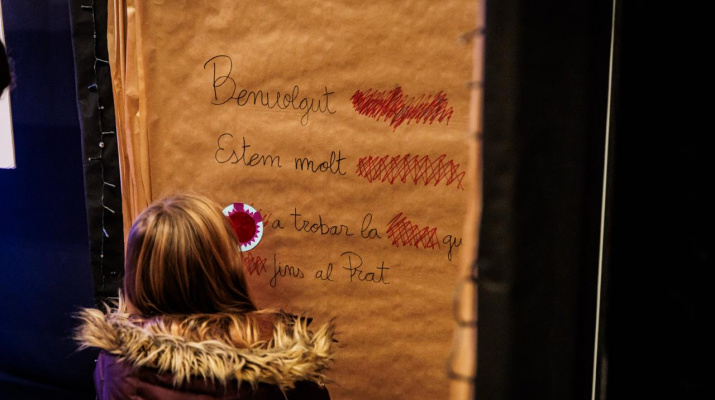 Benvolgut
Estem molt
a trobar la qu
fins al Prat